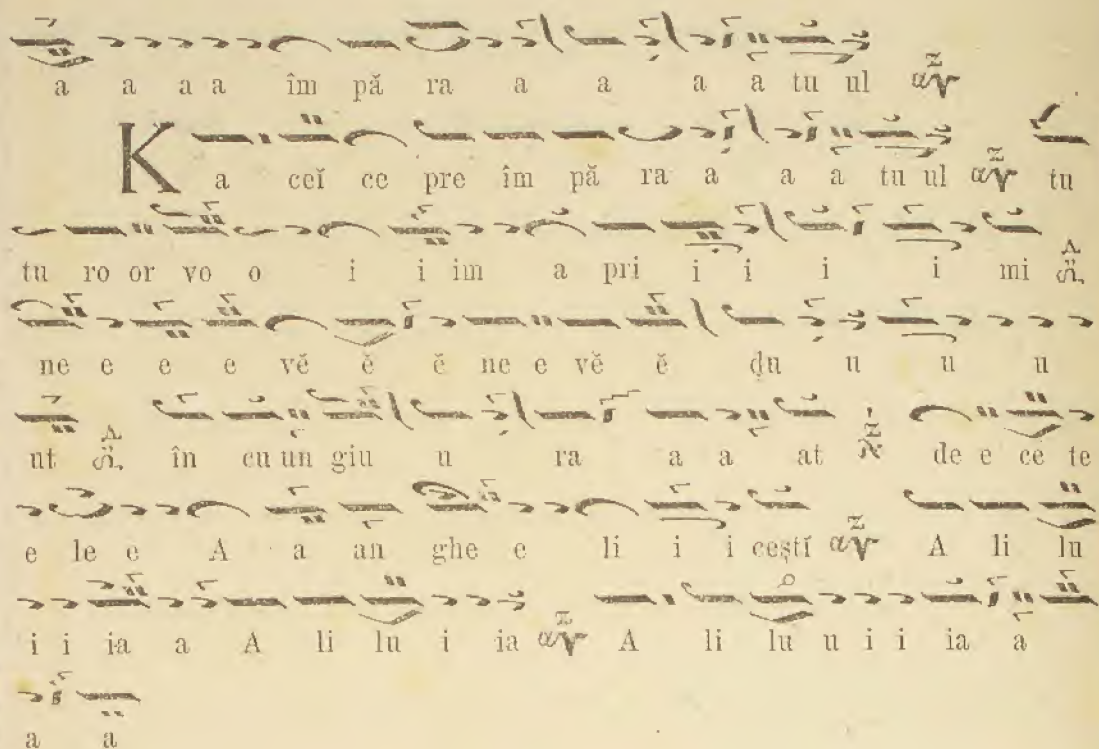 a a a a îm pă ra a a a a tu ul
K a ceĭ ce pre îm pă ra a a a tu ul tu
tu ro or vo o i i im a pri i i i i mi
ne e e e vĕ ĕ ĕ ne e vĕ ĕ du u u u
ut în cu un giu u ra a a at de e ce te
e le e A a an ghe e li i i ceştĭ A li lu
i i ia a A li lu i ia A li lu u i i ia a
a a